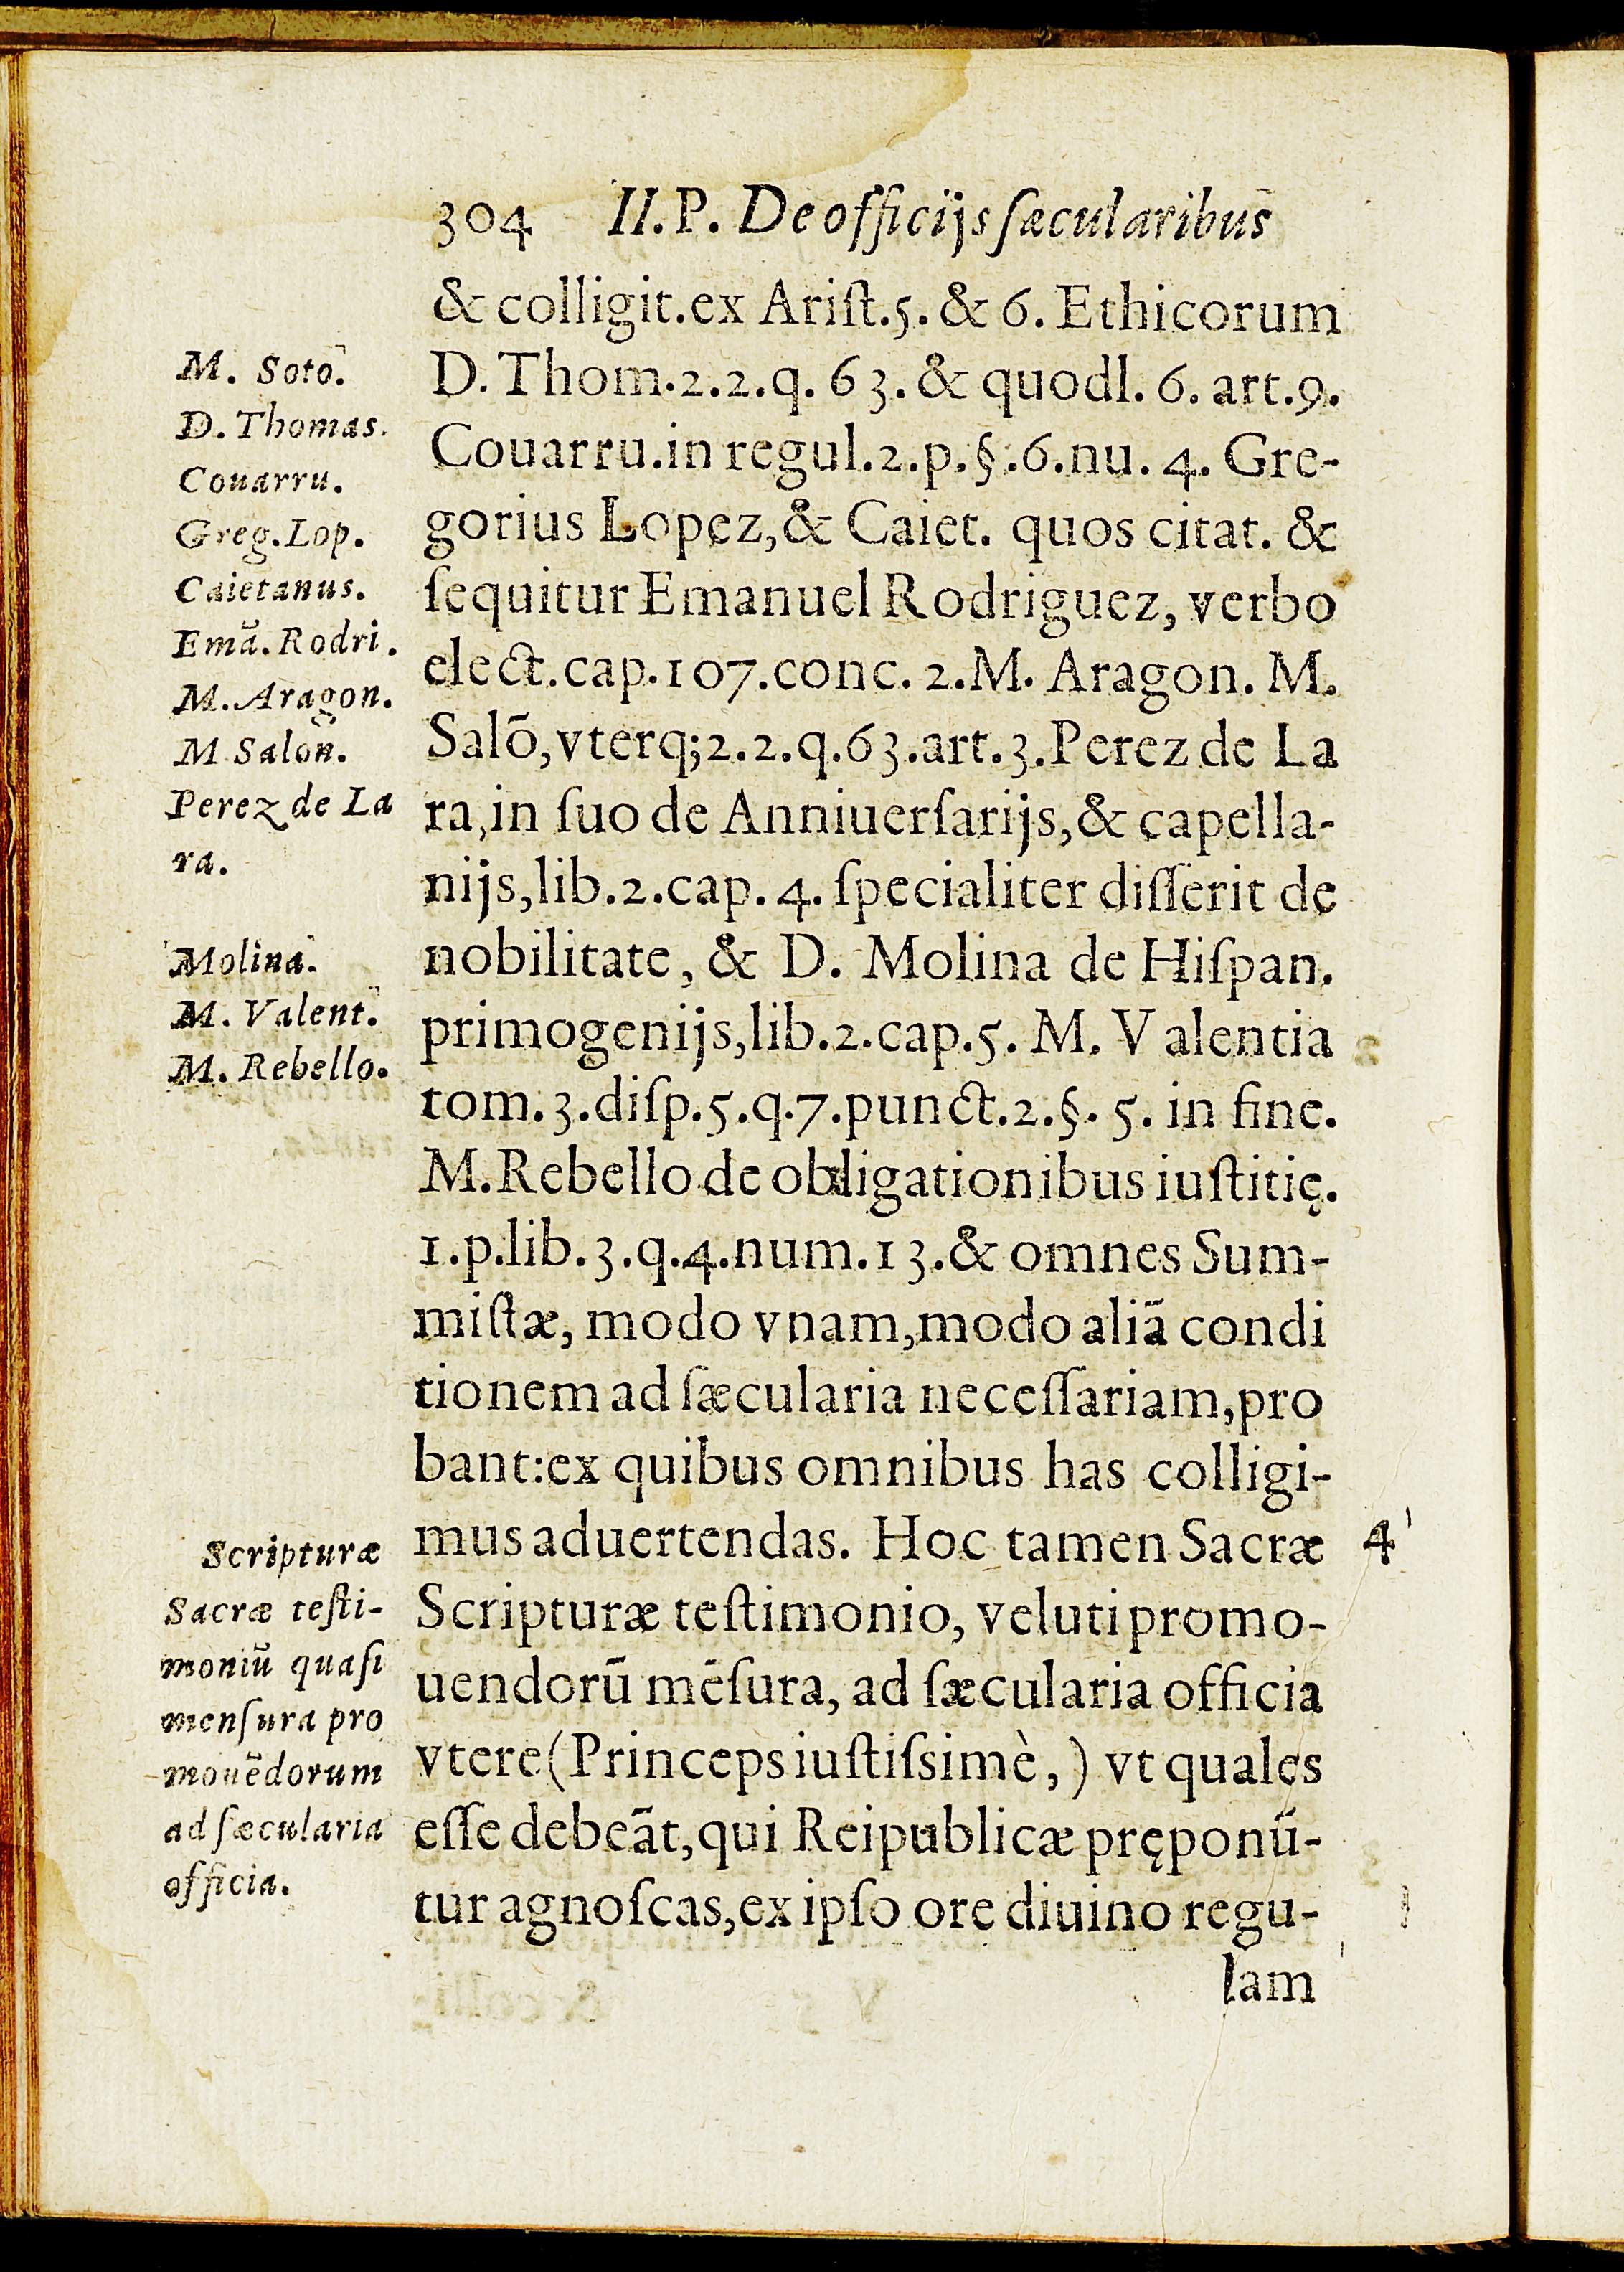 304 II.P. De officijs ſæcularibus
& colligit.ex Ariſt.5.& 6. Ethicorum
D.Thom.2.2.q. 63.& quodl. 6. art.9.
Couarru.in regul.2.p.§.6.nu. 4. Gre-
gorius Lopez,& Caiet. quos citat. &
ſequitur Emanuel Rodriguez, verbo
elect.cap.107.conc. 2.M. Aragon. M.
Salõ,vterq;2.2.q.63.art.3.Perez de La
ra,in ſuo de Anniuerſarijs,& capella-
nijs,lib.2.cap. 4. ſpecialiter diſſerit de
nobilitate, & D. Molina de Hiſpan.
primogenijs,lib.2.cap.5. M. Valentia
tom.3.diſp.5.q.7.punct.2.§. 5. in fine.
M.Rebello de obligationibus iuſtitię.
1.p.lib.3.q.4.num.13.& omnes Sum-
miſtæ, modo vnam,modo aliã condi
tionem ad ſæcularia neceſſariam,pro
bant:ex quibus omnibus has colligi-
mus aduertendas. Hoc tamen Sacræ
Scripturæ teſtimonio, veluti promo-
uendorũ mẽſura, ad ſæcularia officia
vtere(Princeps iuſtiſsimè,) vt quales
eſſe debeãt,qui Reipublicæ pręponũ-
tur agnoſcas,ex ipſo ore diuino regu-
lam
M. Soto.
D. Thomas.
Couarru.
Greg.Lop.
Caietanus.
Emã.Rodri.
M.Aragon.
M Salon.
Perez de La
ra.
Molina.
M. Valent.
M. Rebello.
Scripturæ
Sacræ teſti-
moniũ quaſi
menſura pro
mouẽdorum
ad ſæcularia
officia.
4